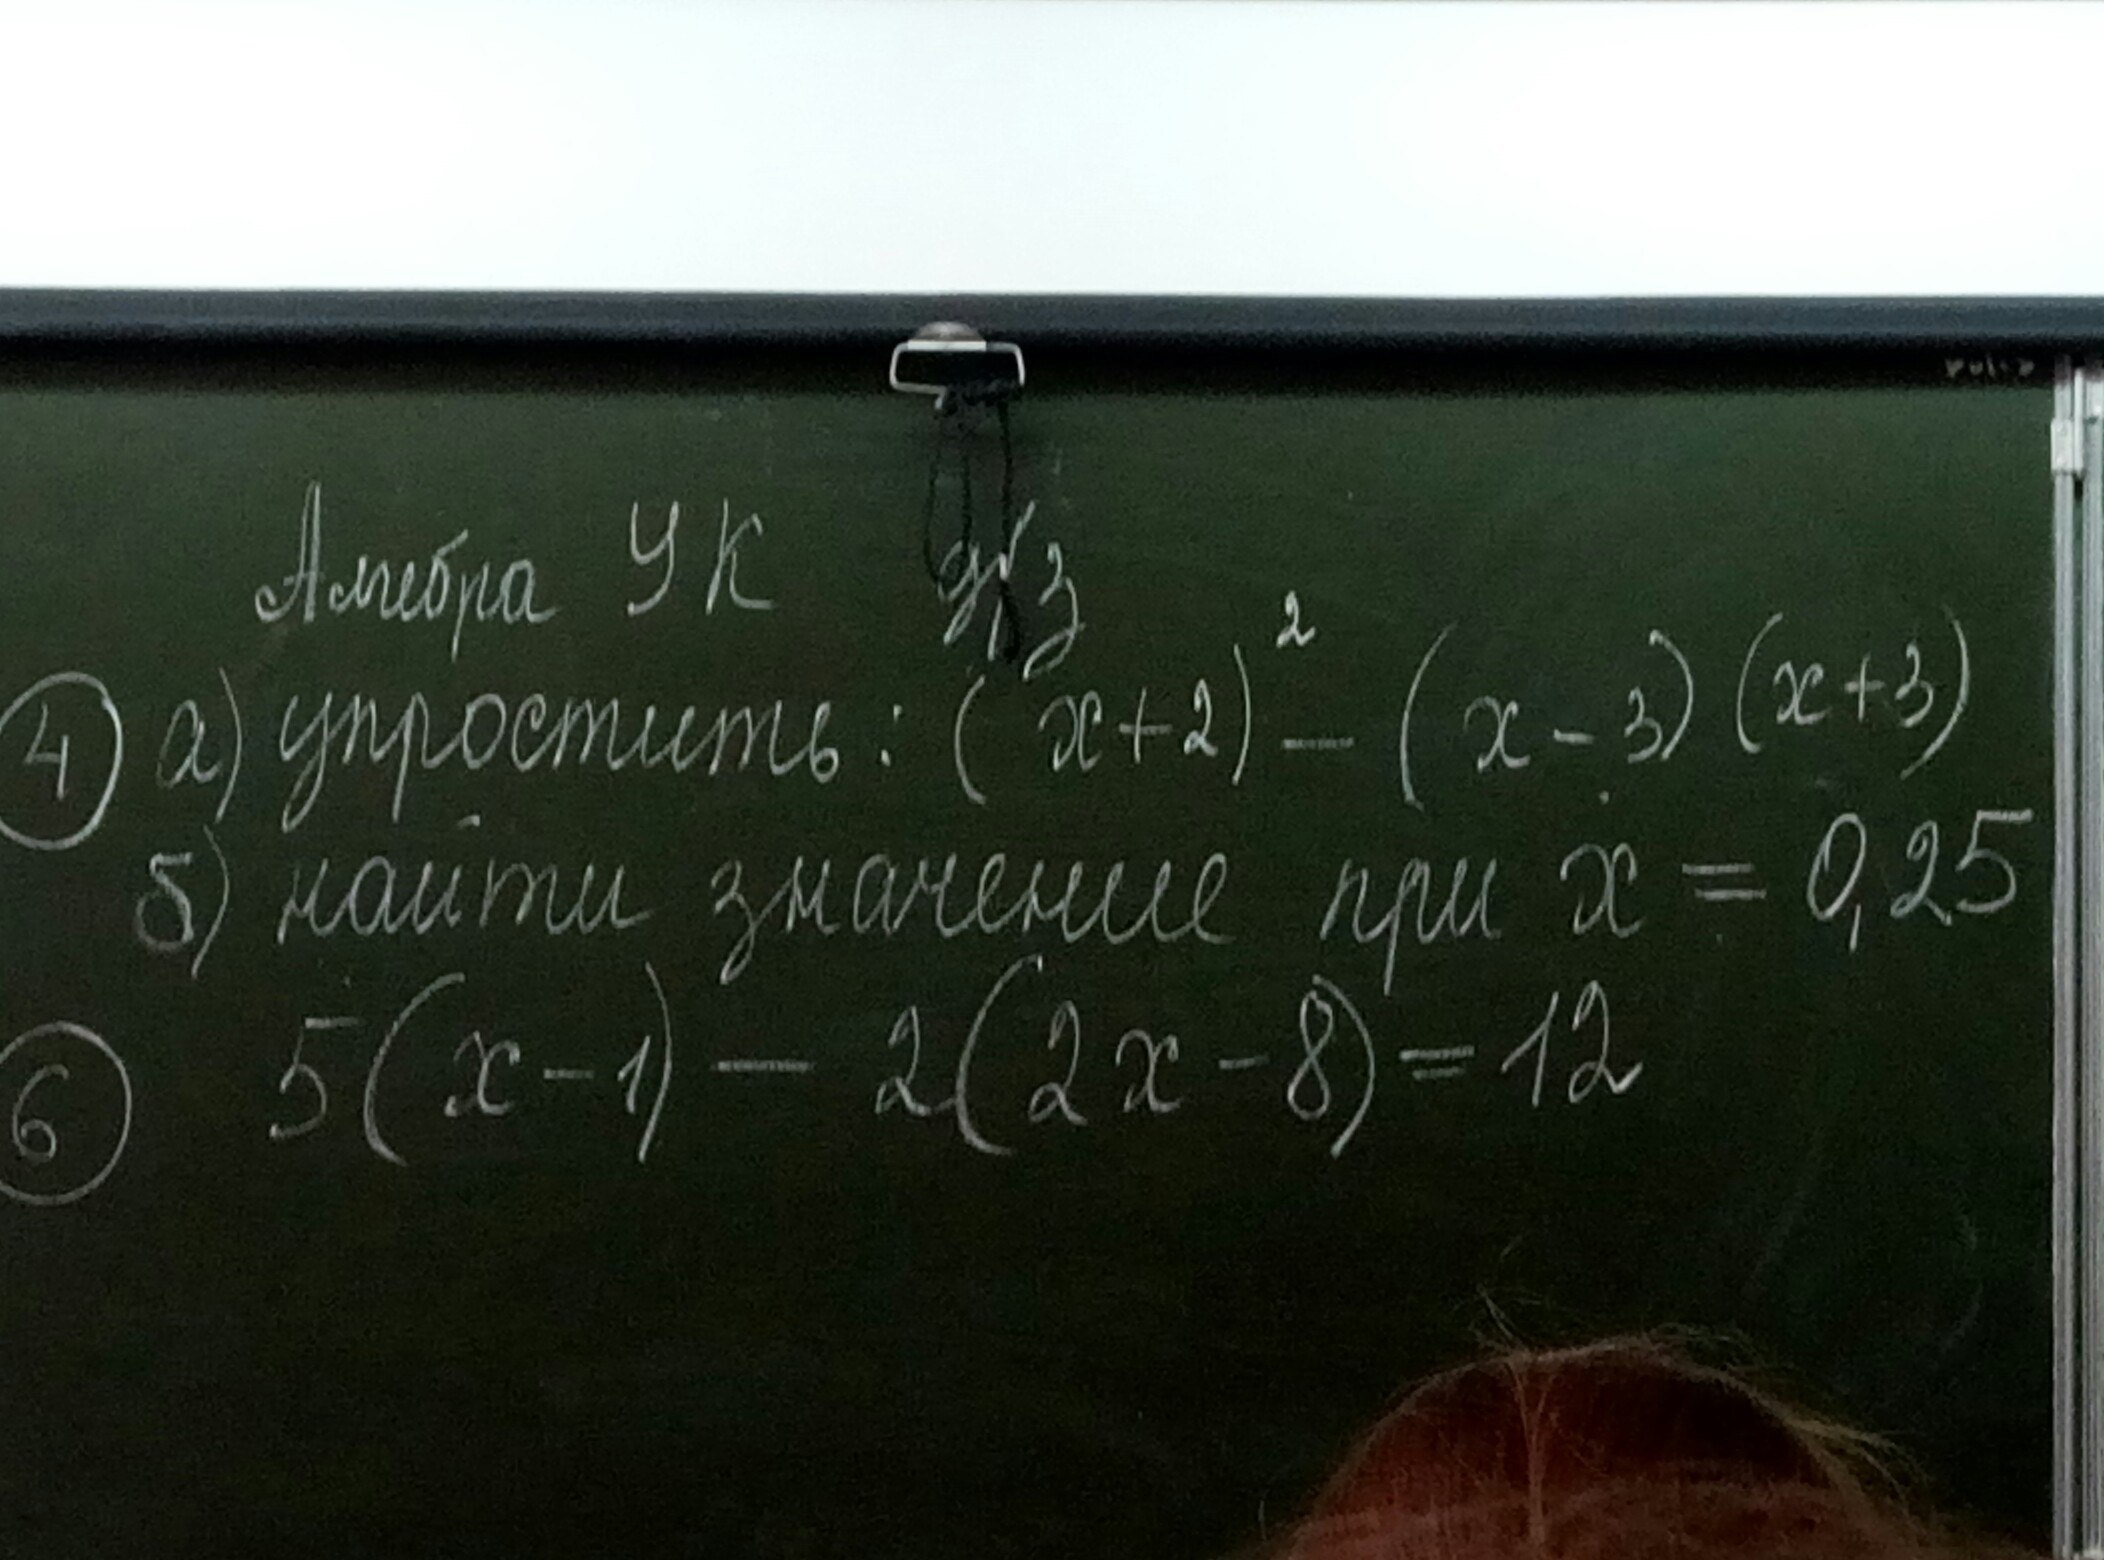 Алгебра УК д/з
④ а) упростить: (x+2)² - (x-3)(x+3)
б) найти значение при x = 0,25
⑥ 5(x-1) - 2(2x-8) = 12